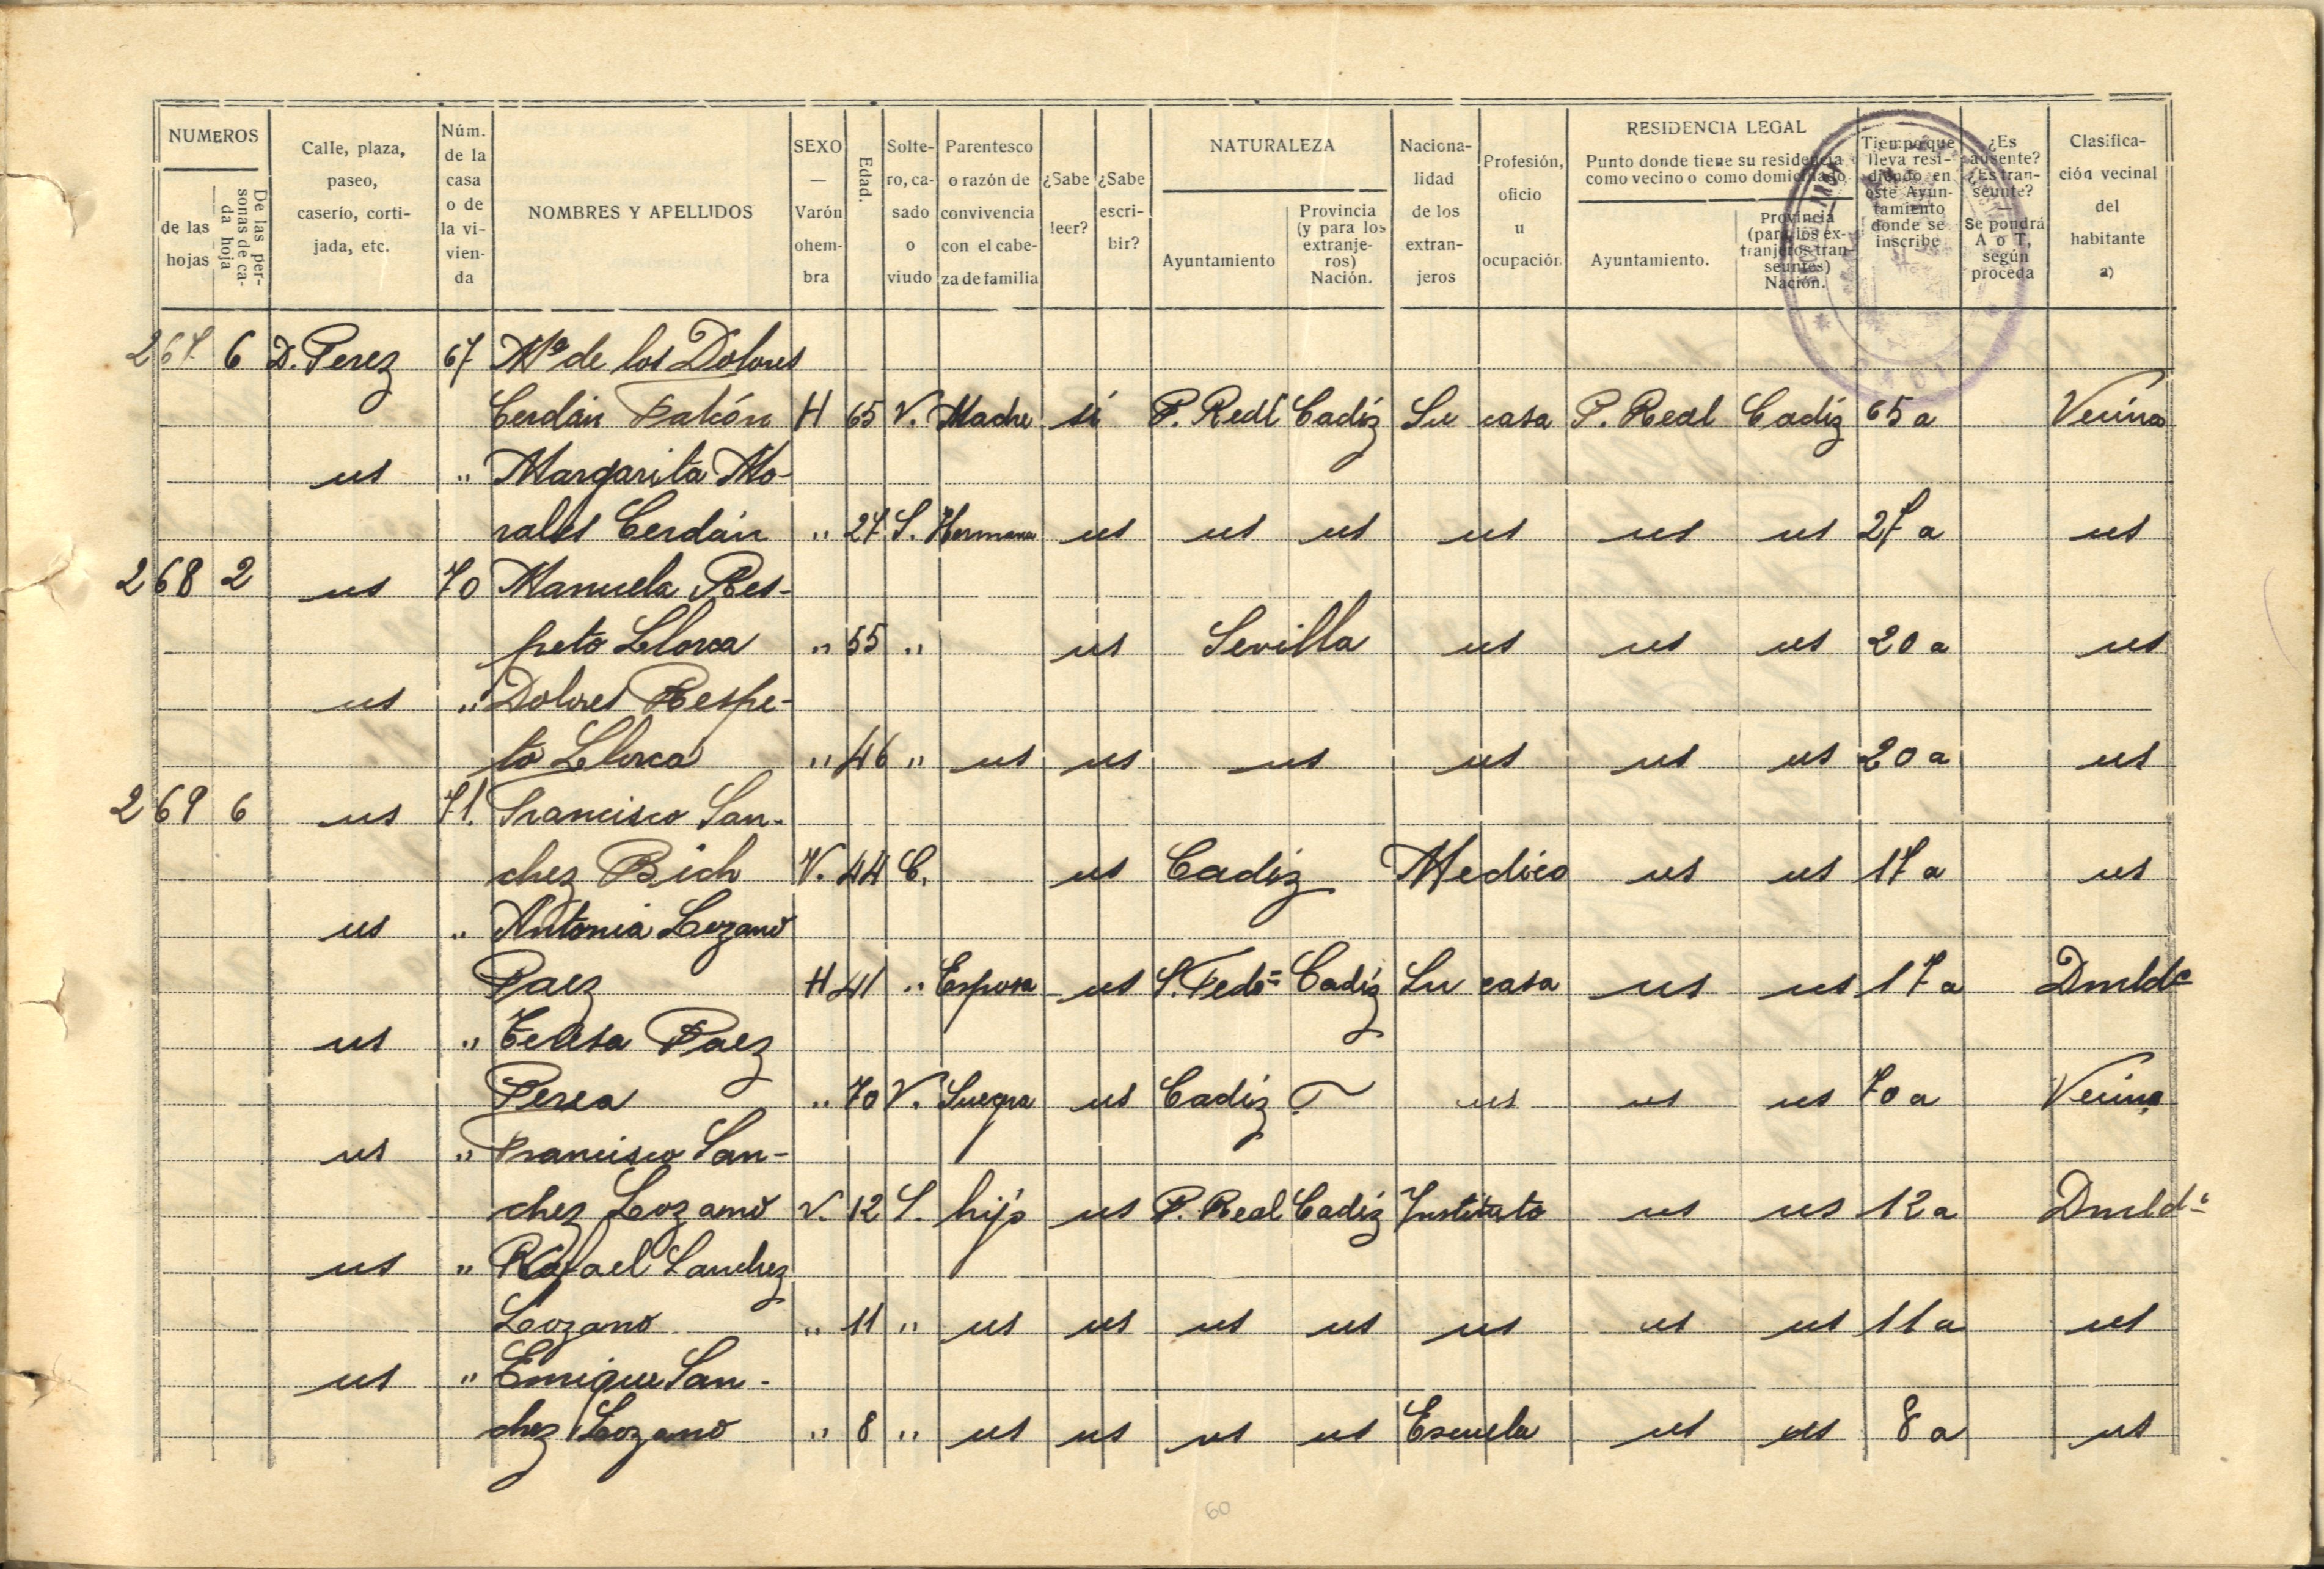 NUMEROS
de las hojas
De las personas de cada hoja
Calle, plaza, paseo, caserío, cortijada, etc.
Núm. de la casa o de la vivienda
NOMBRES Y APELLIDOS
SEXO — Varón ohembra
Edad.
Soltero, casado o viudo
Parentesco o razón de convivencia con el cabeza de familia
¿Sabe leer?
¿Sabe escribir?
NATURALEZA
Ayuntamiento
Provincia (y para los extranjeros) Nación.
Nacionalidad de los extranjeros
Profesión, oficio u ocupación
RESIDENCIA LEGAL
Punto donde tiene su residencia como vecino o como domiciliado
Ayuntamiento.
Provincia (para los extranjeros transeuntes) Nación.
Tiempo que lleva residiendo en este Ayuntamiento donde se inscribe
¿Es ausente? ¿Es transeunte? Se pondrá A o T, según proceda
Clasificación vecinal del habitante a)
267 6 D. Perez 67 Mª de los Dolores
Cerdán Pakón H 65 V. Madre sí P. Real Cadiz Su casa P. Real Cadiz 65 a Vecina
us " Margarita Mo-
rales Cerdán " 27 S. Hermana us us us us us us 27 a us
268 2 us 70 Manuela Res-
peto Llorca " 55 " us Sevilla us us us 20 a us
us " Dolores Respe-
to Llorca " 46 " us us us us us us 20 a us
269 6 us 71. Francisco San-
chez Bich V. 44 C. us Cadiz Medico us us 17 a us
us " Antonia Lozano
Paez H 41 " Esposa us S. Fedo= Cadiz Su casa us us 17 a Dmldª
us " Teresa Paez
Perea " 70 V. Suegra us Cadiz us us us 70 a Vecina
us " Francisco San-
chez Lozano V. 12 S. hijo us P. Real Cadiz Instituto us us 12 a Dmldº
us " Rafael Sanchez
Lozano " 11 " us us us us us us us 11 a us
us " Enrique San-
chez Lozano " 8 " us us us us Escuela us us 8 a us
60